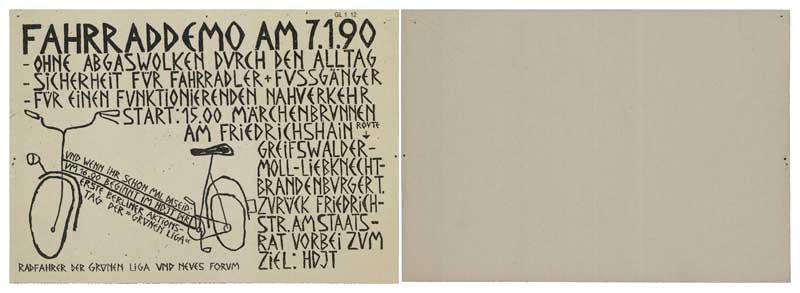 GL 1 12
FAHRRADDEMO AM 7.1.90
- OHNE ABGASWOLKEN DURCH DEN ALLTAG
- SICHERHEIT FÜR FAHRRADLER + FUSSGÄNGER
- FÜR EINEN FUNKTIONIERENDEN NAHVERKEHR
START: 15.00 MÄRCHENBRUNNEN
AM FRIEDRICHSHAIN ROUTE
GREIFSWALDER-
MOLL-LIEBKNECHT-
BRANDENBURGERT.
ZURÜCK FRIEDRICH-
STR. AM STAATS-
RAT VORBEI ZUM
ZIEL: HDJT
UND WENN IHR SCHON MAL DASEID:
UM 16.00 BEGINNT IM HDJT DER
ERSTE BERLINER AKTIONS-
TAG DER "GRÜNEN LIGA"
RADFAHRER DER GRÜNEN LIGA UND NEUES FORUM